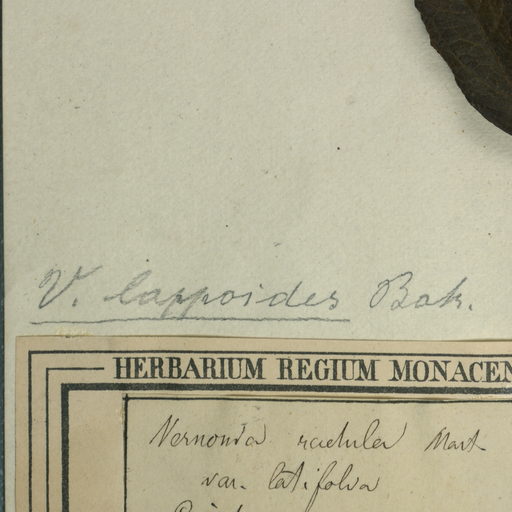 V. lappoides Bak.
HERBARIUM REGIUM MONACEN
Vernonia radula Mart
var. latifolia